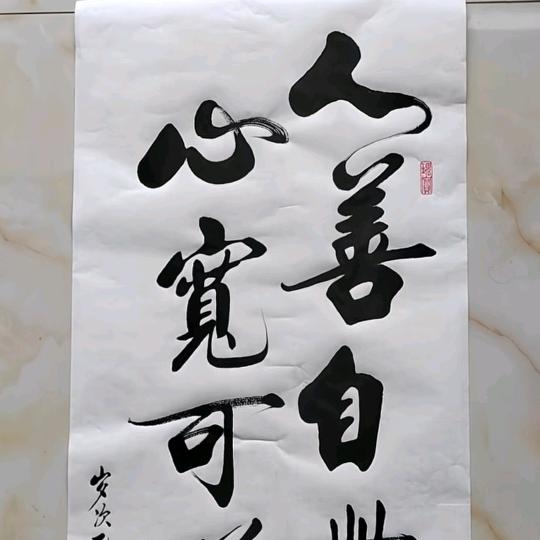 人善自
心寬可
岁次